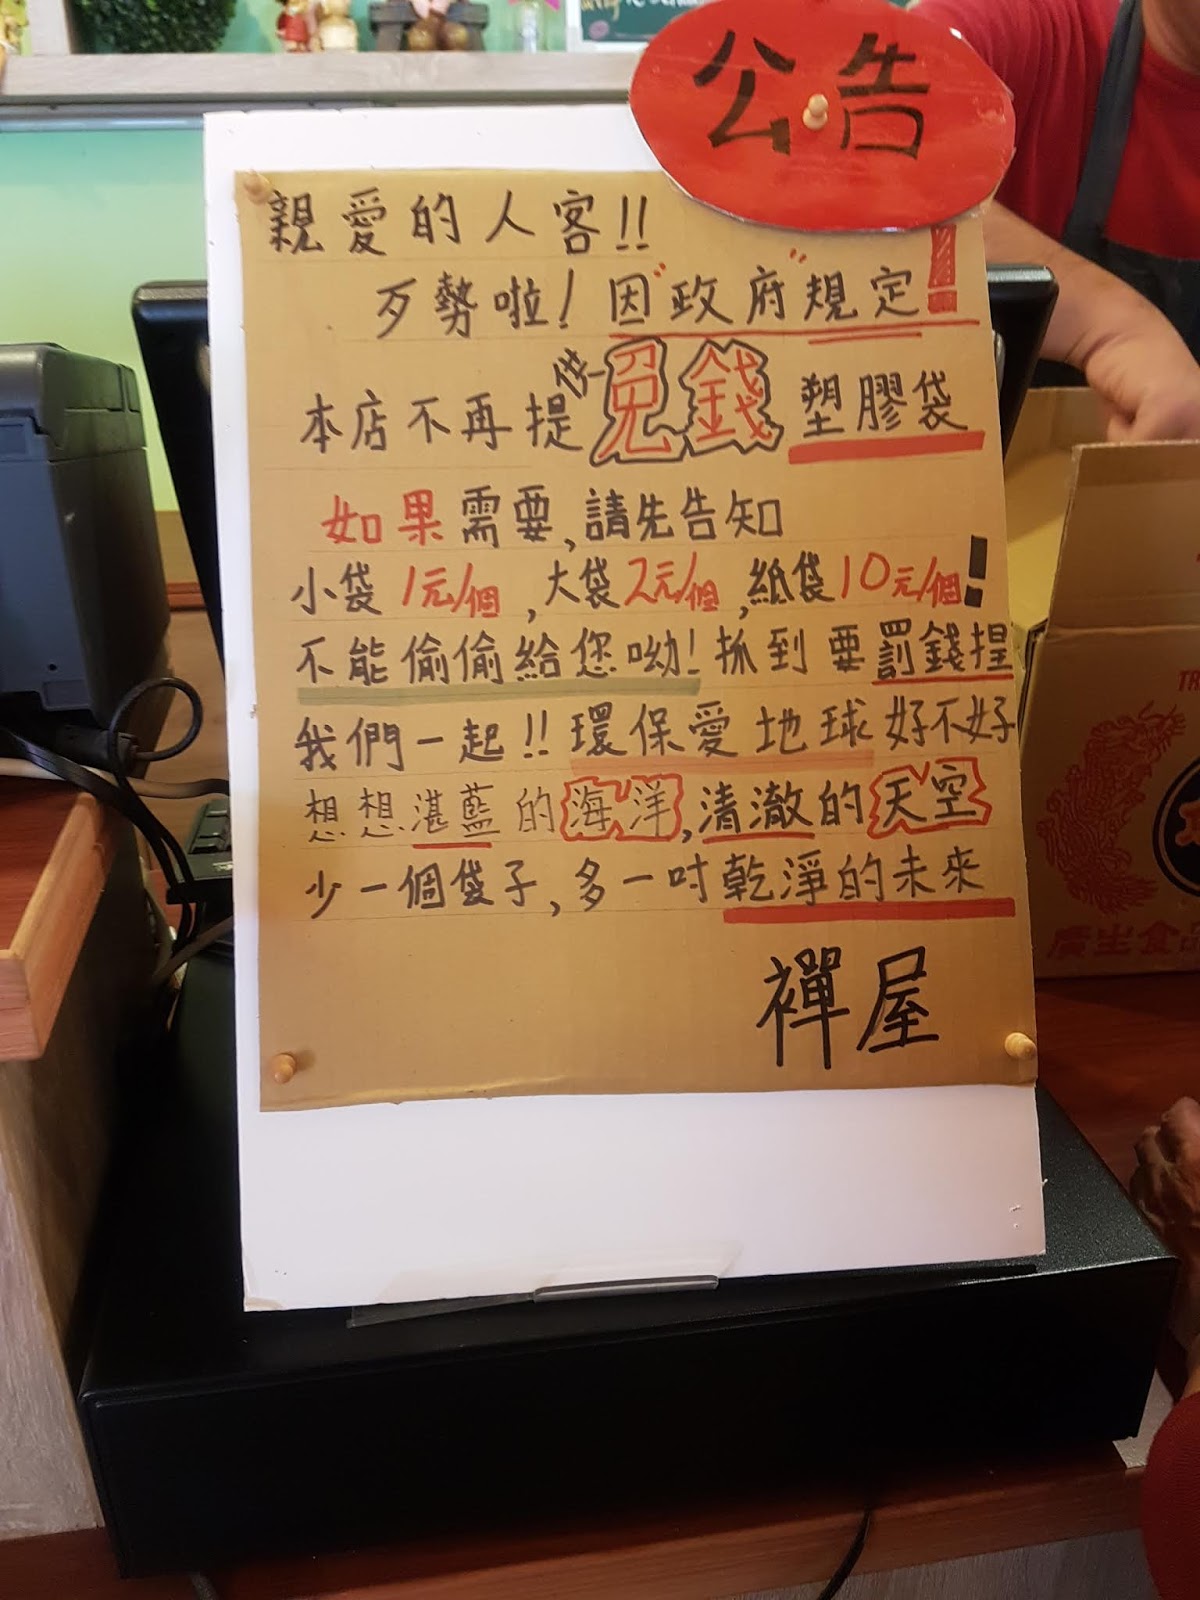 公告
親愛的人客!!
歹勢啦!因"政府"規定!
本店不再提供免錢塑膠袋
如果需要,請先告知
小袋1元/個,大袋2元/個,紙袋10元/個!
不能偷偷給您呦!抓到要罰錢捏
我們一起!!環保愛地球好不好
想想湛藍的海洋,清澈的天空
少一個袋子,多一吋乾淨的未來
襌屋
廣生食品